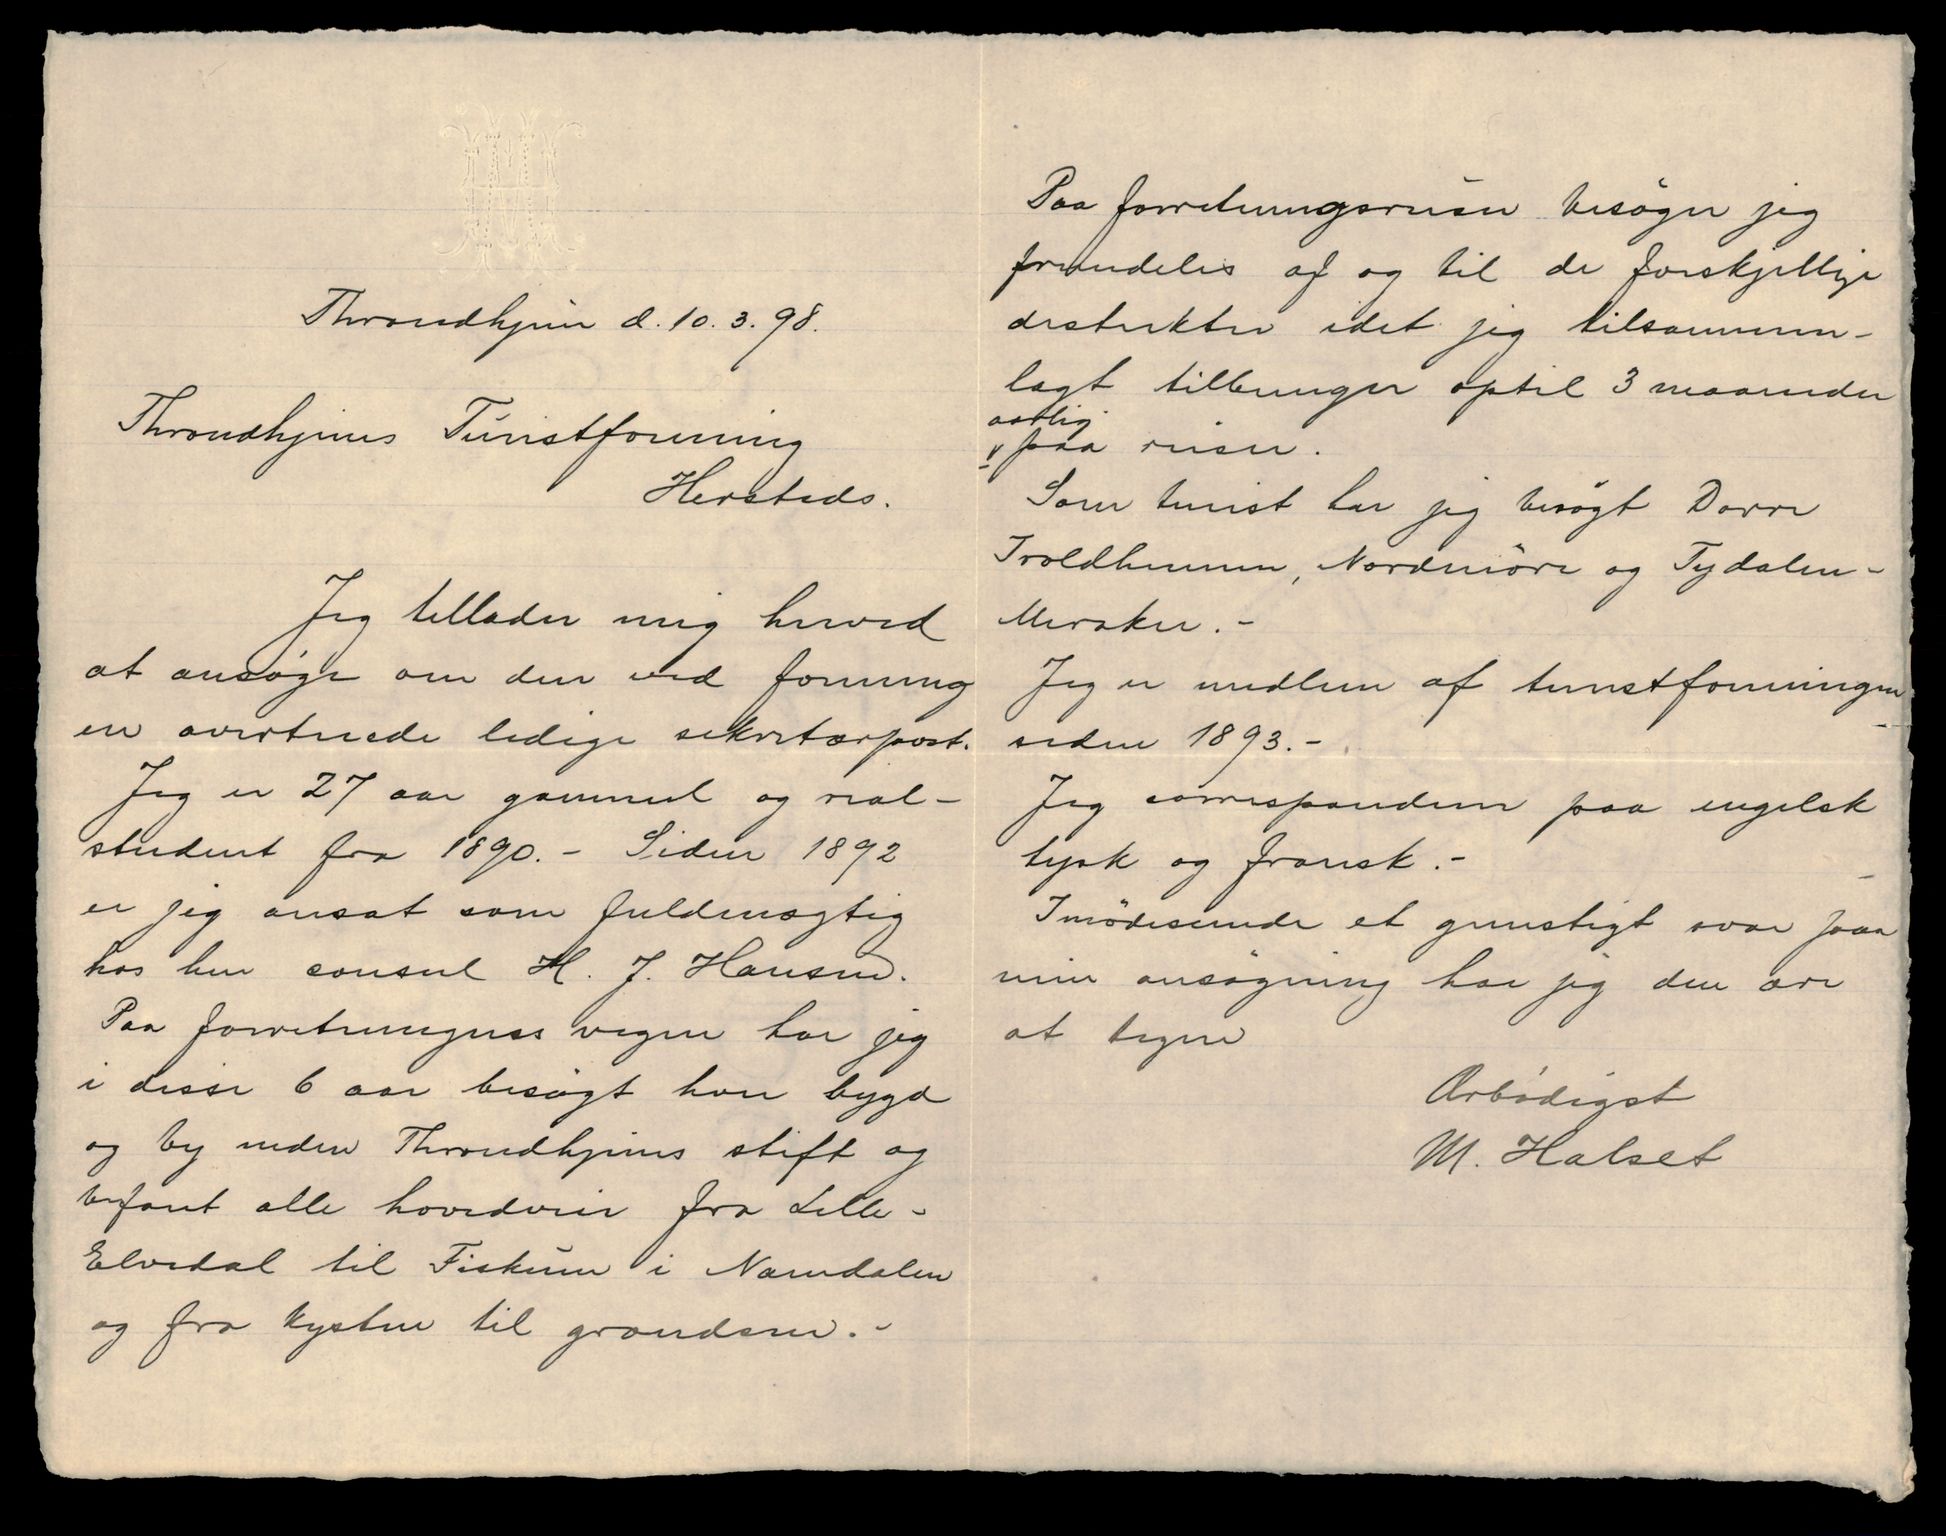 Throndhjem d. 10.3.98.
Throndhjems Turistforening
Hersteds.
Jeg tillader mig herved
at ansøge om den ved forening
en overtræde ledige sekretærpost.
Jeg er 27 aar gammel og real-
student fra 1890. – Siden 1892
er jeg ansat som fuldmægtig
hos herr consul H. J. Hansen.
Paa forretningens vegne har jeg
i disse 6 aar besøgt hver bygd
og by inden Throndhjems stift og
befaret alle hovedveie fra Lille-
Elvedal til Fiskum i Namdalen
og fra kysten til grændsen. –
Paa forretningsreiser besøger jeg
fremdeles af og til de forskjellige
distrikter idet jeg tilsammen-
lagt tilbringer optil 3 maaneder
aarlig
paa reiser.
Som turist har jeg besøgt Dovre
Troldheimen, Nordmöre og Tydalen-
Meraker. –
Jeg er medlem af turistforeningen
siden 1893. –
Jeg corresponderer paa engelsk
tysk og fransk. –
Imødeseende et gunstigt svar paa
min ansøgning har jeg den ære
at tegne
Ærbødigst
M. Halset